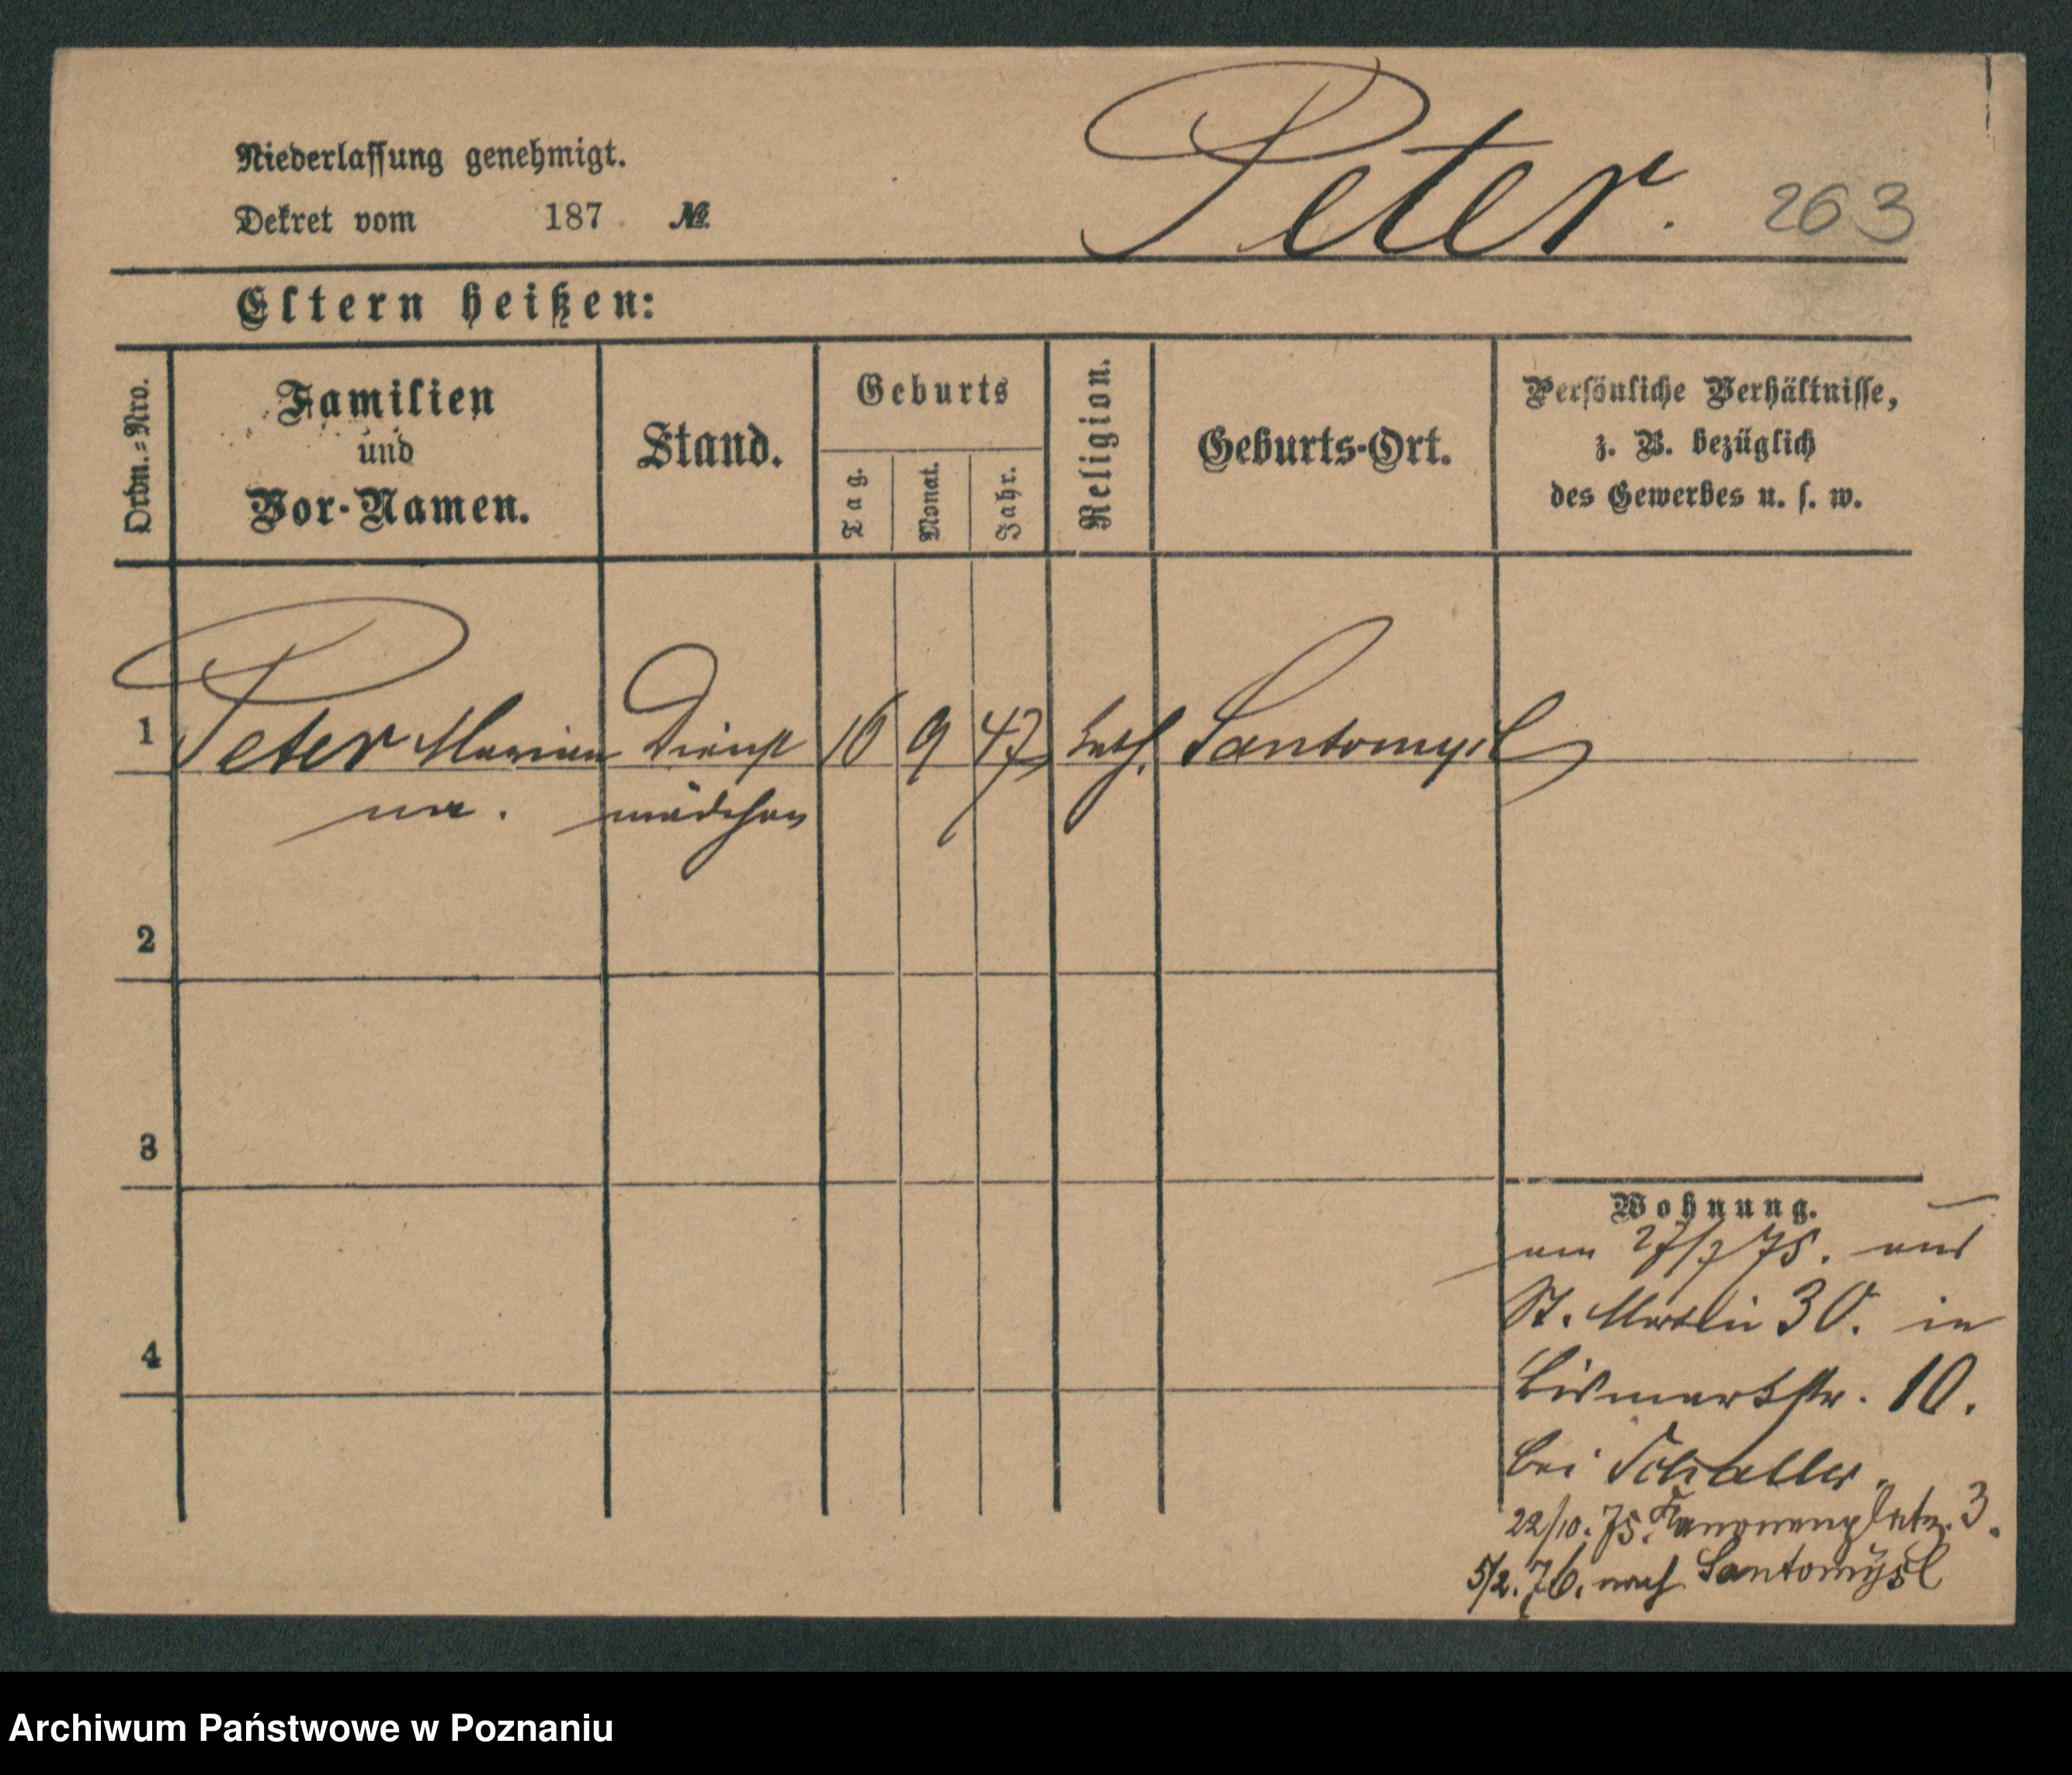 Niederlassung genehmigt.
Dekret vom 187 . №
Peter. 263
Eltern heißen:
Ordn.=Nro.
Familien
und
Vor-Namen.
Stand.
Geburts
Tag.
Monat.
Jahr.
Religion.
Geburts-Ort.
Persönliche Verhältnisse,
z. B. bezüglich
des Gewerbes u. s. w.
1 Peter Marian Dienst 16 9 47 kath. Santomysl
na. mädchen
2
3
4
Wohnung.
am 27/7 75. aus
St. Martin 30. in
Bismarkstr. 10.
bei Schaller.
22/10. 75. Kanonenplatz. 3.
5/2. 76. nach Santomysl
Archiwum Państwowe w Poznaniu